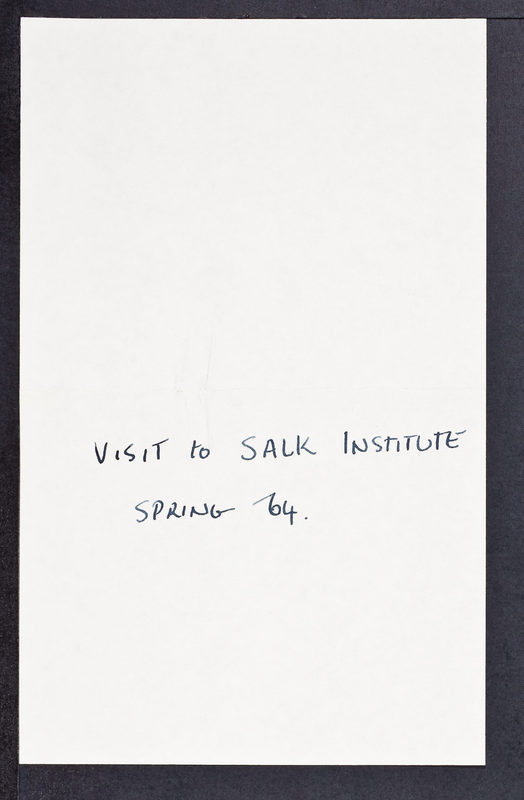 VISIT to SALK INSTITUTE
SPRING '64.